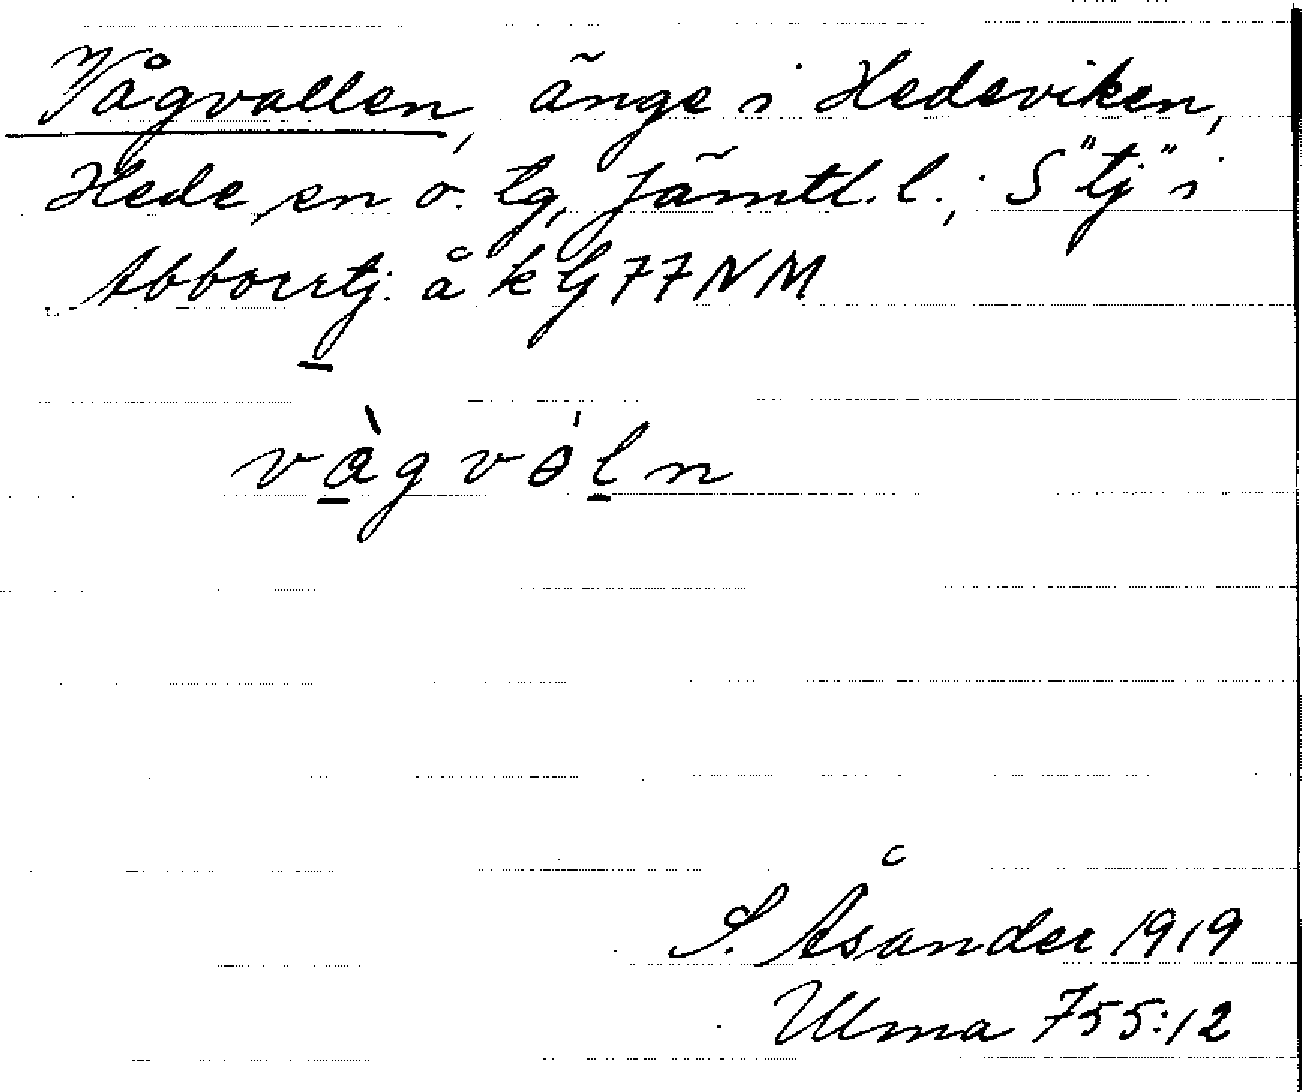 Vågvallen, änge i Hedeviken,
Hede sn o. tg, Jämtl. l.; S "tj" i
Abborrtj. å k bl 77 NM
vàgvòln
S. Åsander 1919
Ulma 755:12